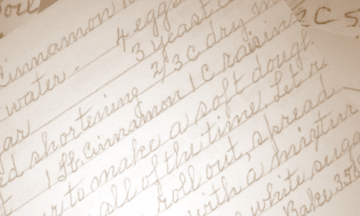 Cinnamon
2 C S
water 4 eggs
3 yeast
2/3 C dry m
shortening 1 C raisins
1 lb. Cinnamon
to make a soft dough
all of the time. Let r
roll out, spread
with a mixture
white sugar
Bake 350